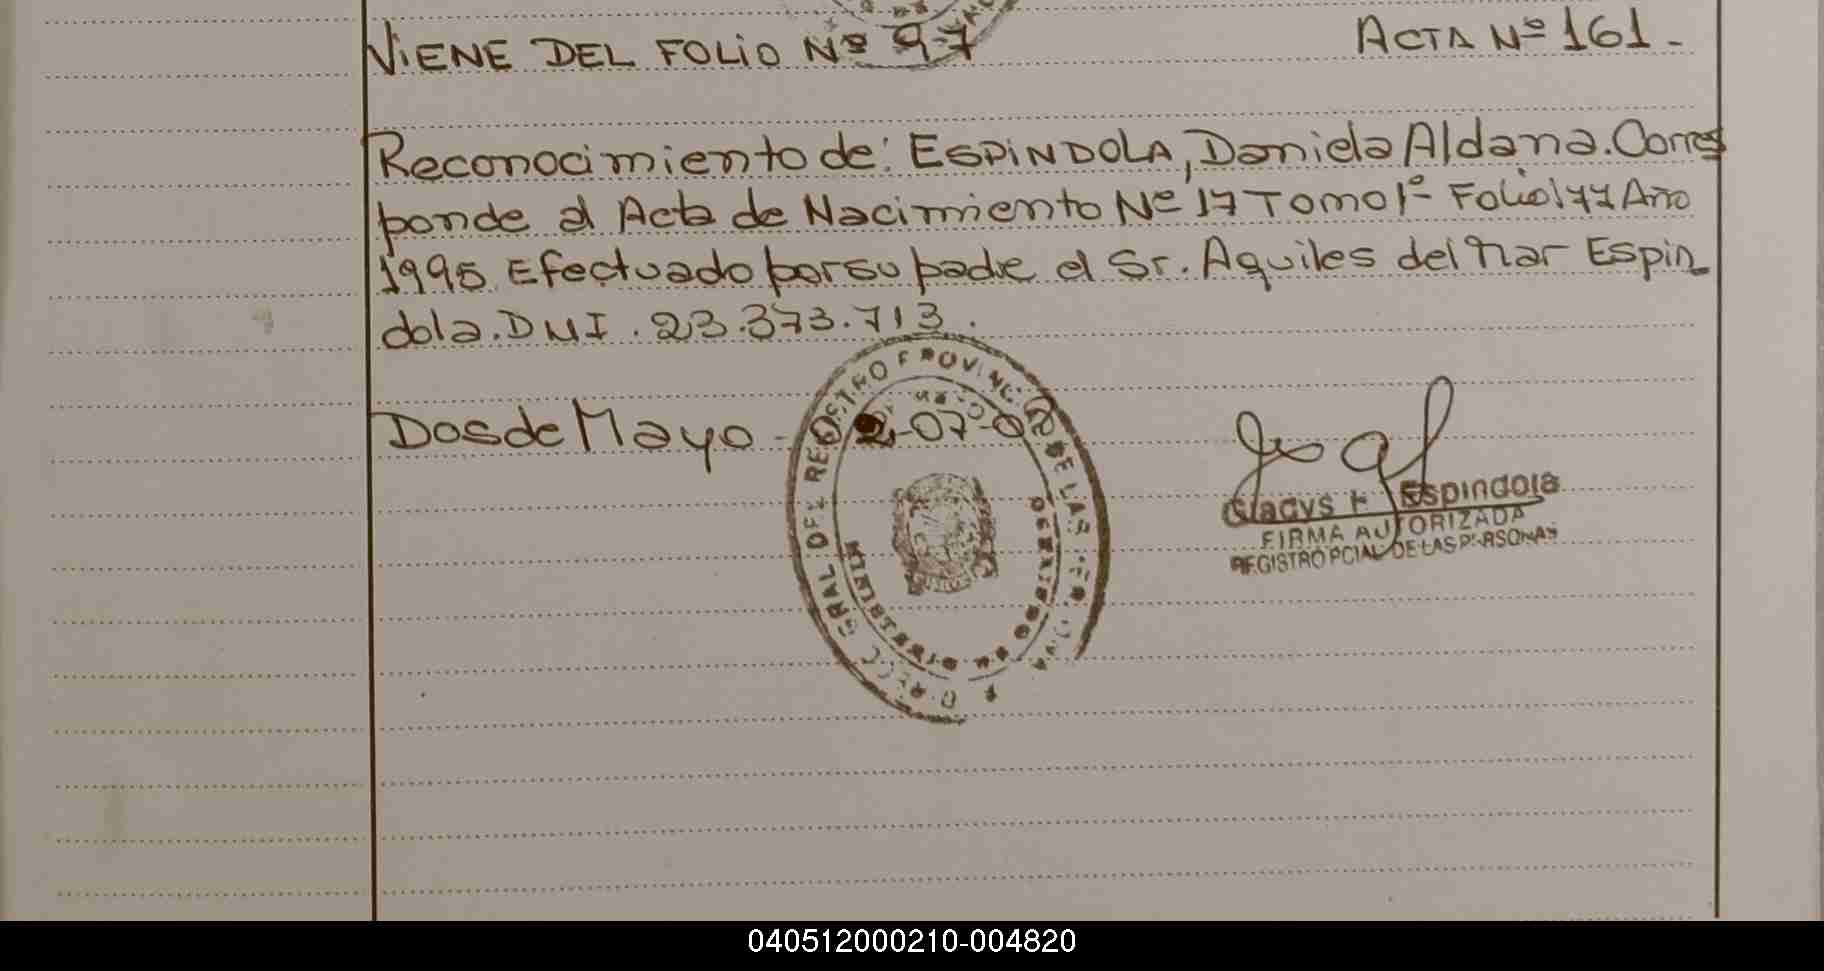 VIENE DEL FOLIO Nº 97 ACTA Nº 161.-
Reconocimiento de: ESPINDOLA, Daniela Aldana. Corres
ponde al Acta de Nacimiento Nº 17 Tomo 1º Folio 177 Año
1995. Efectuado por su padre el Sr. Aquiles del Mar Espin
dola. DNI. 23.373.713.
Dos de Mayo - 02-07-02
DIRECC. GRAL DEL REGISTRO PROVINC. DE LAS PERSONAS
Gladys H. Espindola
FIRMA AUTORIZADA
REGISTRO PCIAL DE LAS PERSONAS
040512000210-004820